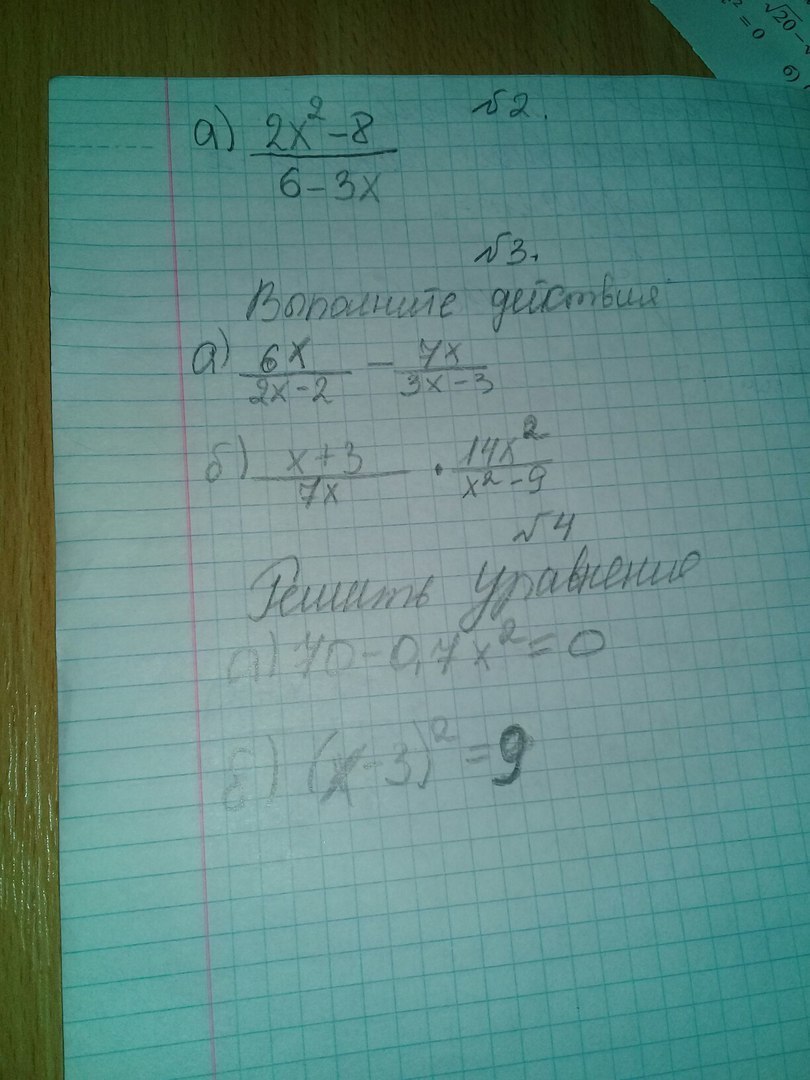 √20 -
² = 0
б)
№2.
а) (2x² - 8)/(6 - 3x)
№3.
Выполните действия
а) 6x/(2x - 2) - 7x/(3x - 3)
б) (x + 3)/(7x) · 14x²/(x² - 9)
№4
Решить уравнение
а) 70 - 0,7x² = 0
б) (x - 3)² = 9